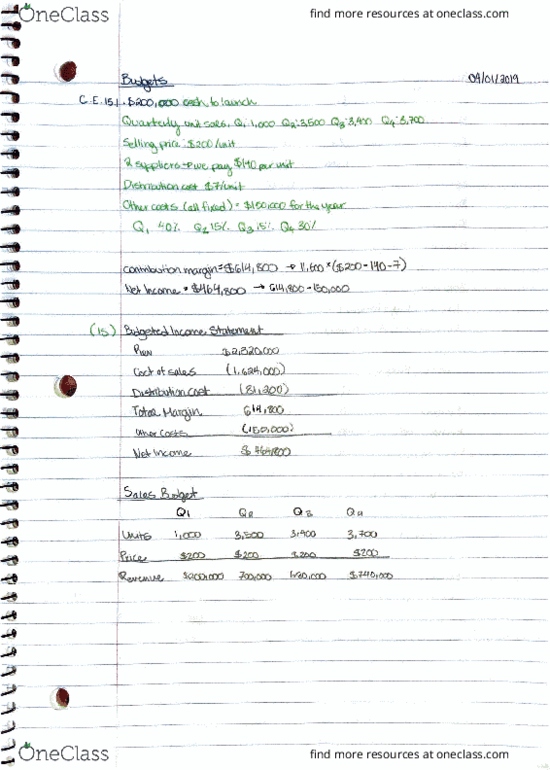 OneClass
find more resources at oneclass.com
Budgets 09/01/2019
C.E.15.1. $200,000 cash to launch
Quarterly unit sales, Q1 1,000 Q2: 3,500 Q3: 3,400 Q4: 3,700
Selling price: $200/unit
2 suppliers → we pay $140 per unit
Distribution cost $7/unit
Other costs (all fixed) = $150,000 for the year
Q1 40% Q2 15% Q3 15% Q4 30%
Contribution margin = $614,800 → 11,600 * ($200 - 140 - 7)
Net Income = $464,800 → 614,800 - 150,000
(IS) Budgeted Income Statement
Rev $2,320,000
Cost of sales (1,624,000)
Distribution cost (81,200)
Total Margin 614,800
Other Costs (150,000)
Net Income
Sales Budget
Q1 Q2 Q3 Q4
Units 1,000 3,500 3,400 3,700
Price $200 $200 $200 $200
Revenue $200,000 700,000 680,000 $740,000
OneClass
find more resources at oneclass.com